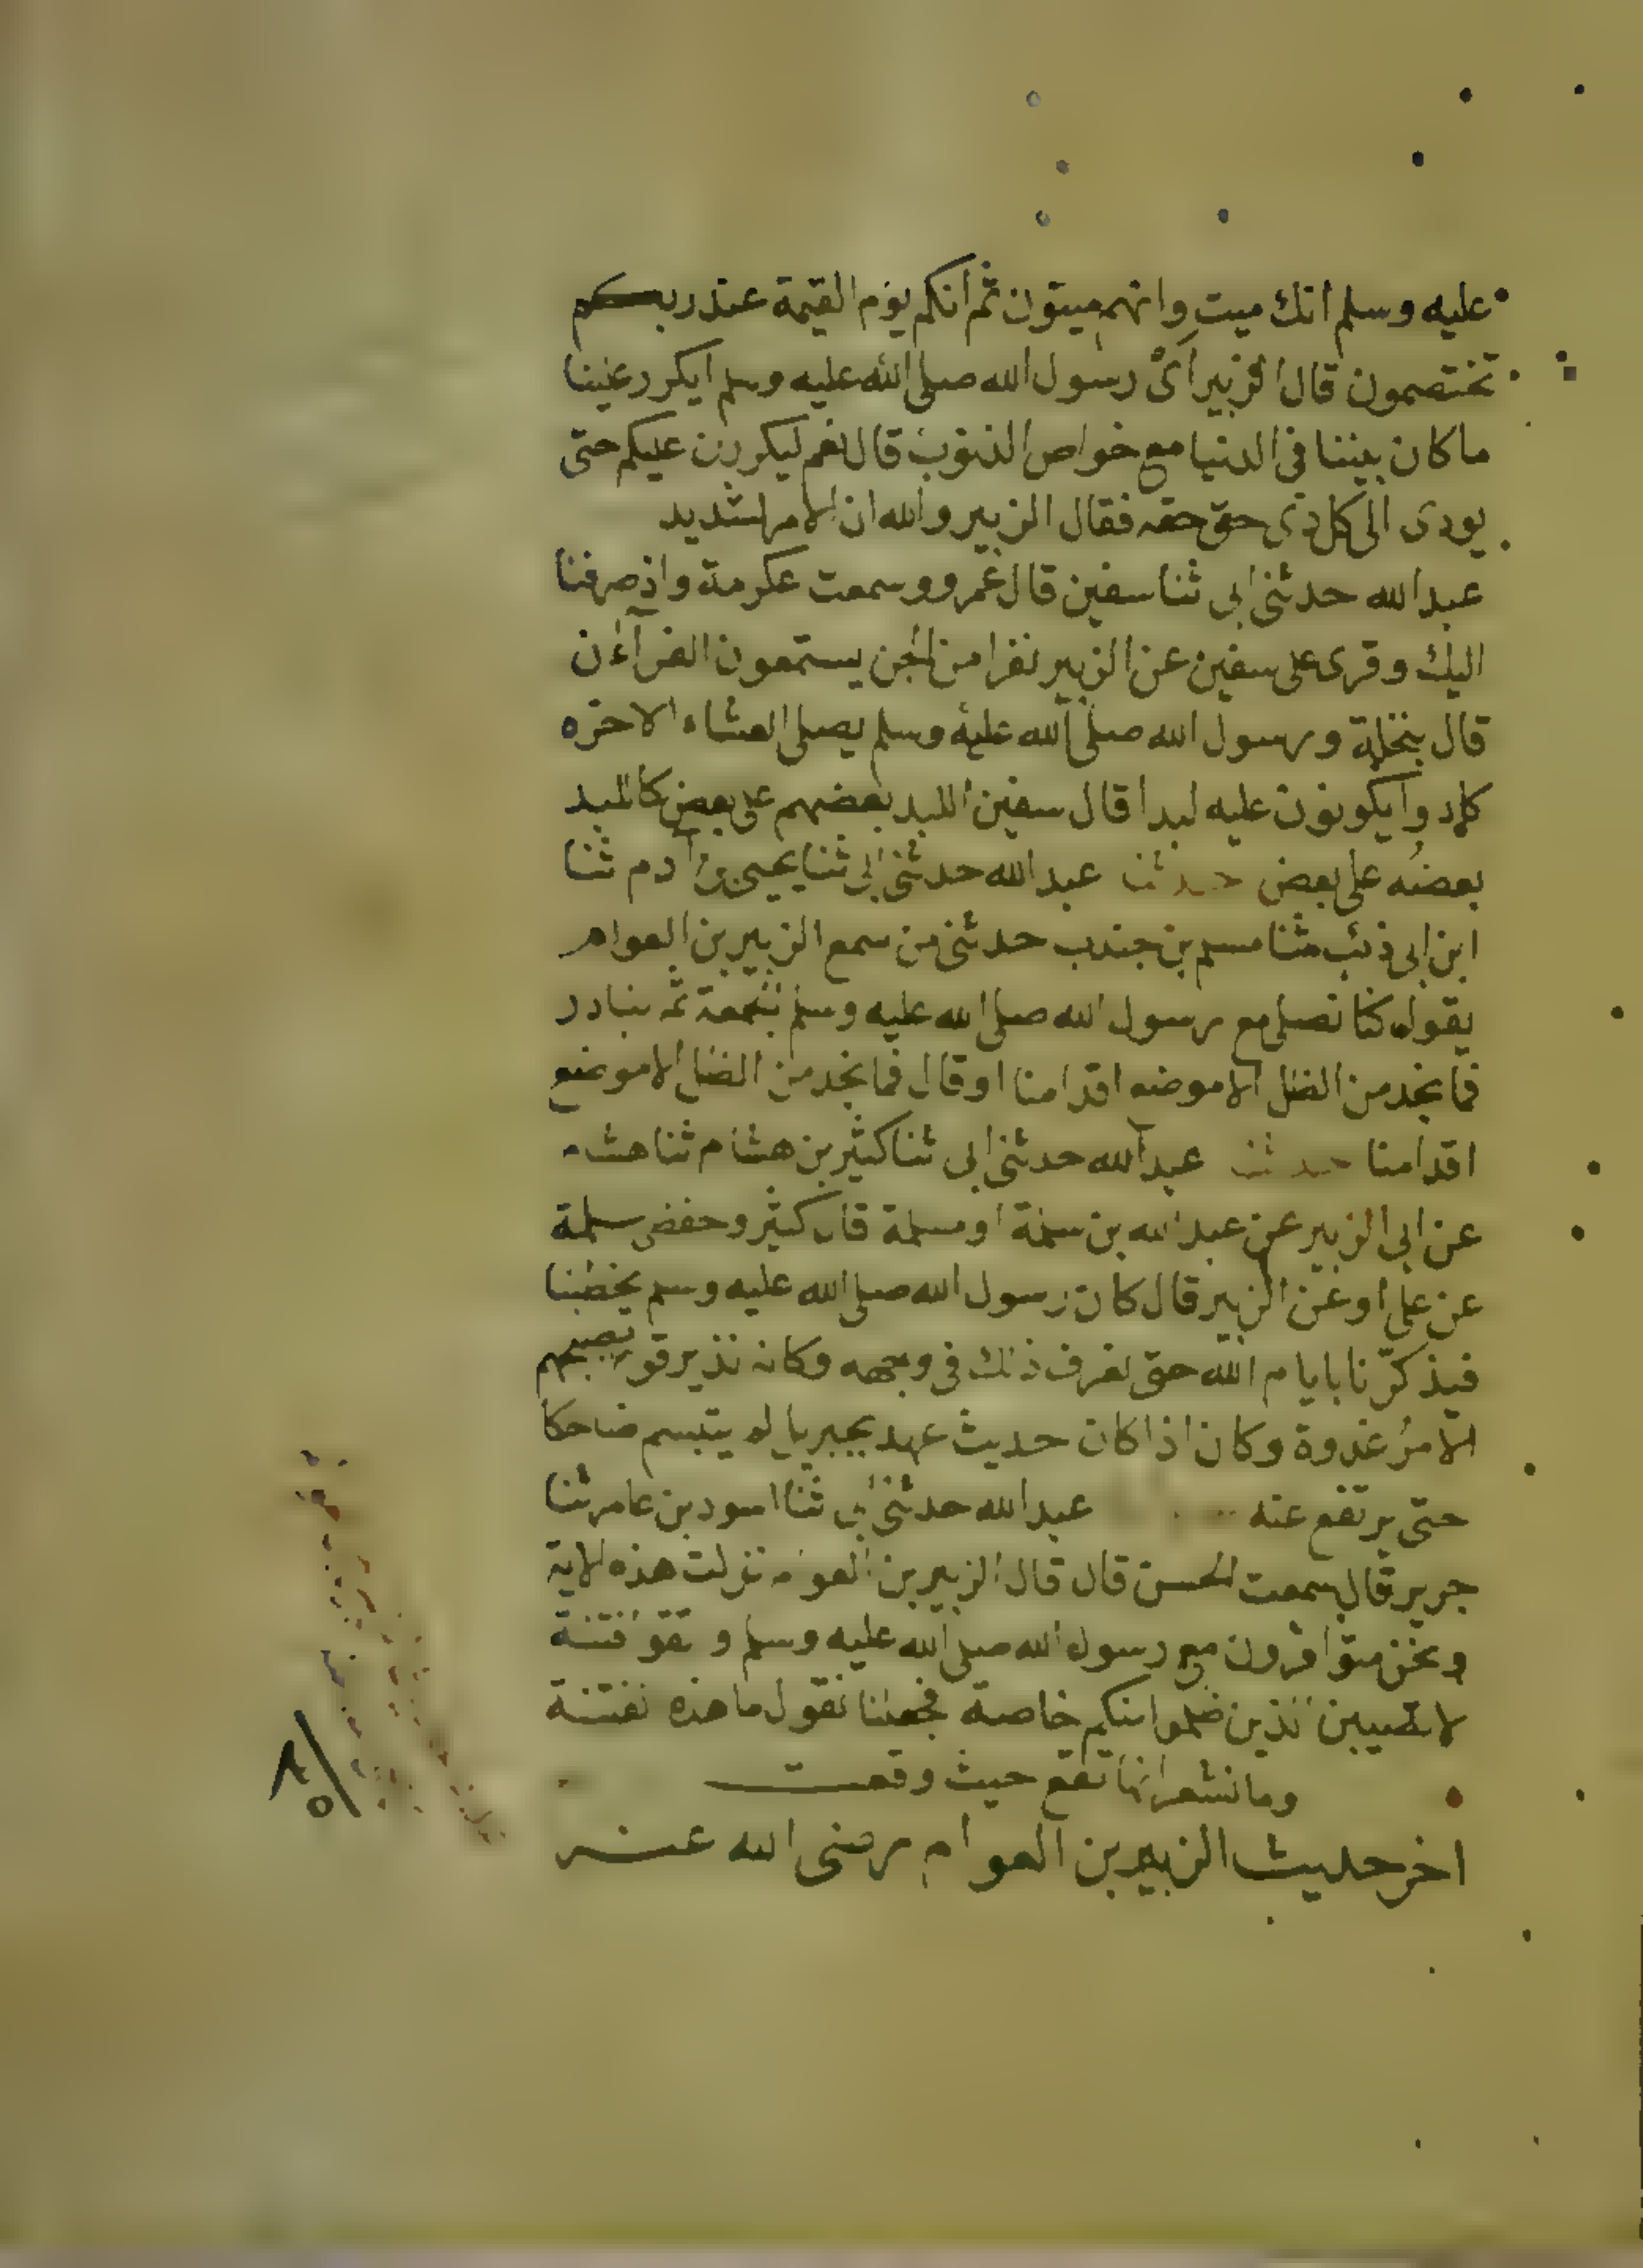 عليه وسلم انك ميت وانهم ميتون ثم انكم يوم القيمة عند ربكم
تختصمون قال الزبير اى رسول الله صلى الله عليه وسلم ايكرر علينا
ما كان بيننا فى الدنيا مع خواص الذنوب قال نعم ليكررن عليكم حتى
يودى الى كل ذى حق حقه فقال الزبير والله ان الامر لشديد
عبد الله حدثنى ابى ثنا سفين قال عمرو وسمعت عكرمة واذ صرفنا
اليك وقرى على سفين عن الزبير نفرا من الجن يستمعون القرآءن
قال بنخلة ورسول الله صلى الله عليه وسلم يصلى العشاء الاخره
كادوا يكونون عليه لبدا قال سفين اللبد بعضهم على بعض كاللبد
بعضه على بعض حدثنا عبد الله حدثنى ابى ثنا يحيى بن آدم ثنا
ابن ابى ذئب ثنا مسلم بن جندب حدثنى من سمع الزبير بن العوام
يقول كنا نصلى مع رسول الله صلى الله عليه وسلم الجمعة ثم نبادر
فما نجد من الظل الا موضع اقدامنا او قال فما نجد من الظل الا موضع
اقدامنا حدثنا عبد الله حدثنى ابى ثنا كثير بن هشام ثنا هشام
عن ابى الزبير عن عبد الله بن سلمة او مسلمة قال كثير وحفظى سلمة
عن على او عن الزبير قال كان رسول الله صلى الله عليه وسلم يخطبنا
فيذكرنا بايام الله حتى نعرف ذلك فى وجهه وكانه نذير قوم يصبحهم
الامر غدوة وكان اذا كان حديث عهد بجبريل لم يتبسم ضاحكا
حتى يرتفع عنه عبد الله حدثنى ابى ثنا اسود بن عامر ثنا
جرير قال سمعت الحسن قال قال الزبير بن العوام نزلت هذه الاية
ونحن متوافرون مع رسول الله صلى الله عليه وسلم واتقوا فتنة
لا تصيبن الذين ظلموا منكم خاصة فجعلنا نقول ما هذه الفتنة
وما نشعر انها تقع حيث وقعت
اخر حديث الزبير بن العوام رضى الله عنه